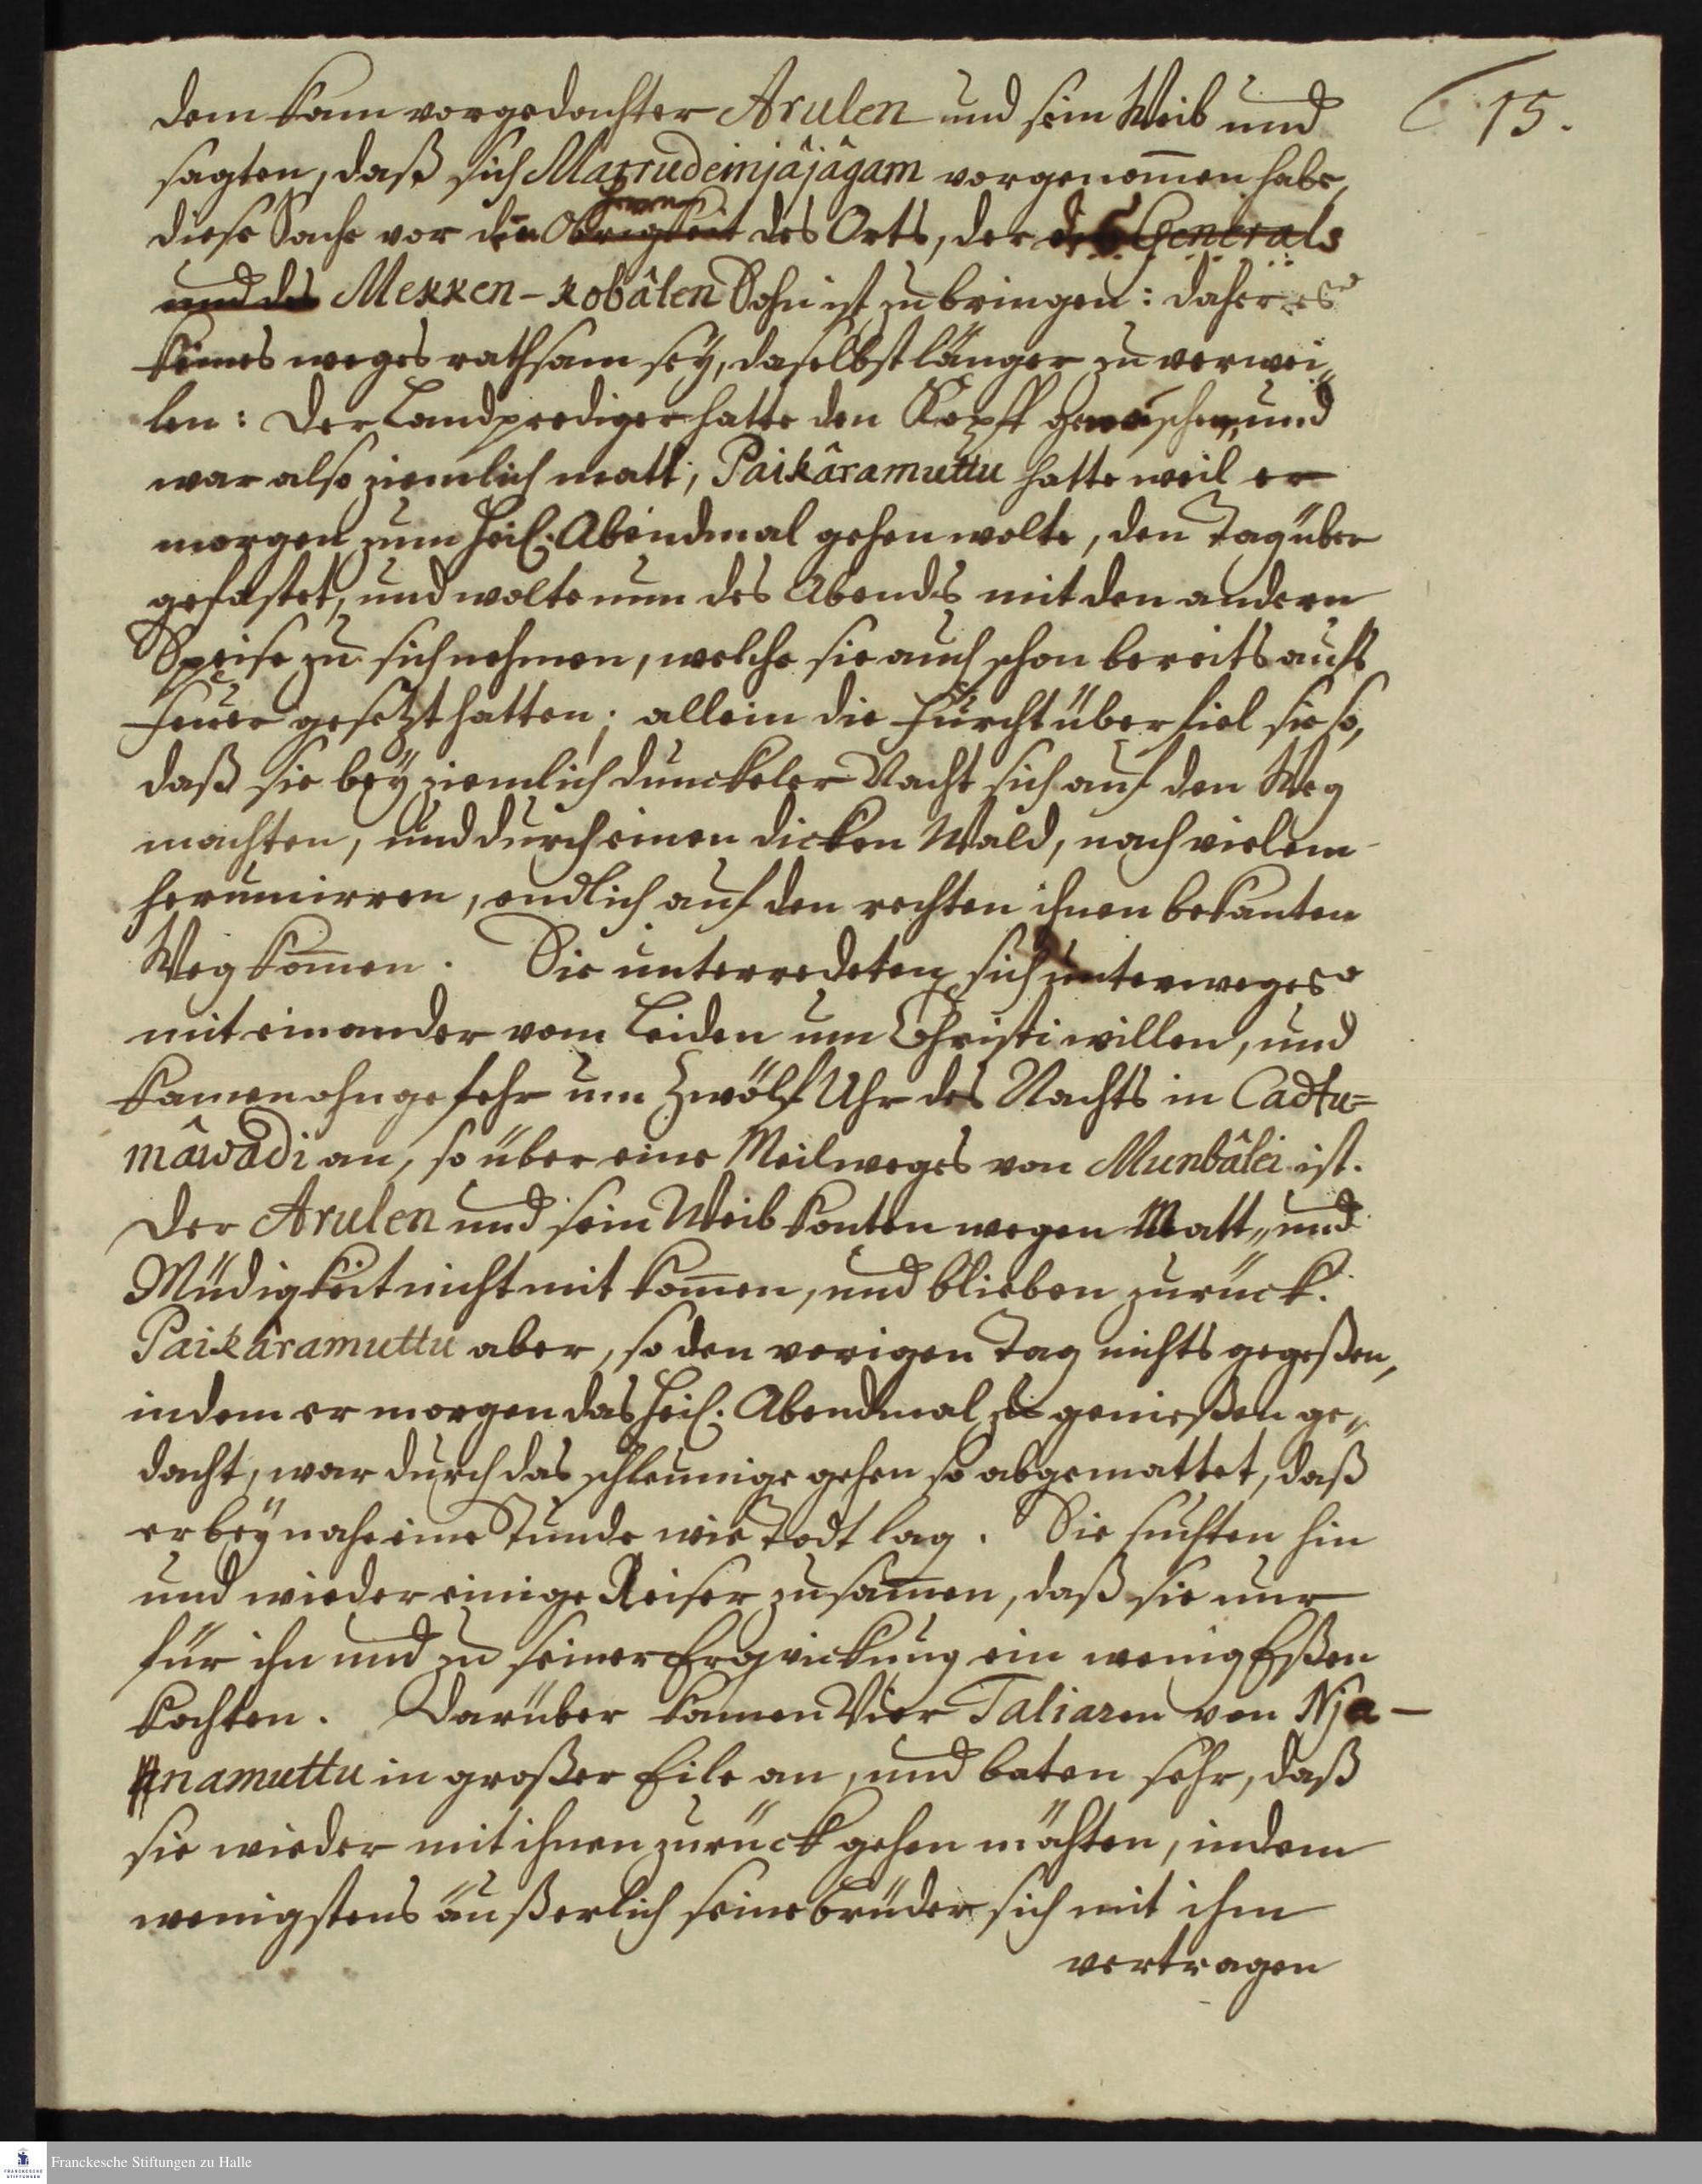 15.
dem kam vorgedachter Arulen und sein Weib und
sagten, daß sich Marrudeinjâjâgam vorgenom̅en habe,
diese Sache vor den Herrn Obrigkeit des Orts, der des Generals
und des Mekken-kobâlen Sohn ist zu bringen: daher es
keines weges rathsam sey, daselbst länger zu verwei„
len: Der Landprediger hatte den Kopff gewaschen, und
war also ziemlich matt; Paikâramuttu hatte weil er
morgen zum Heil. Abendmal gehen wolte, den Tag über
gefastet, und wolte nun des Abends mit den andern
Speise zu sich nehmen, welche sie auch schon bereits aufs
Feuer gesetzt hatten; allein die Furcht überfiel sie so,
daß sie bey ziemlich dunckeler Nacht sich auf den Weg
machten, und durch einen dicken Wald, nach vielem
herumirren, endlich auf den rechten ihnen bekanten
Weg kom̅en. Sie unterredeten sich unterweges
mit einander vom Leiden um Christi willen, und
kamen ohngefehr um Zwölf Uhr des Nachts in Cadtu=
mâwadi an, so über eine Meilweges von Munbâlei ist.
Der Arulen und sein Weib konten wegen Matt„ und
Müdigkeit nicht mit kom̅en, und blieben zurück.
Paikâramuttu aber, so den vorigen Tag nichts gegeßen,
indem er morgen das Heil. Abendmal zu genießen ge„
dacht, war durch das schleunige gehen so abgemattet, daß
er beynahe eine Stunde wie todt lag. Sie suchten hin
und wieder einige Reiser zusam̅en, daß sie nur
für ihn und zu seiner Erqvickung ein wenig Eßen
kochten. Darüber kamen Vier Taliaren von Nja-
namuttu in großer Eile an, und baten sehr, daß
sie wieder mit ihnen zurück gehen möchten, indem
wenigstens äußerlich seine brüder sich mit ihm
vertragen
Franckesche Stiftungen zu Halle